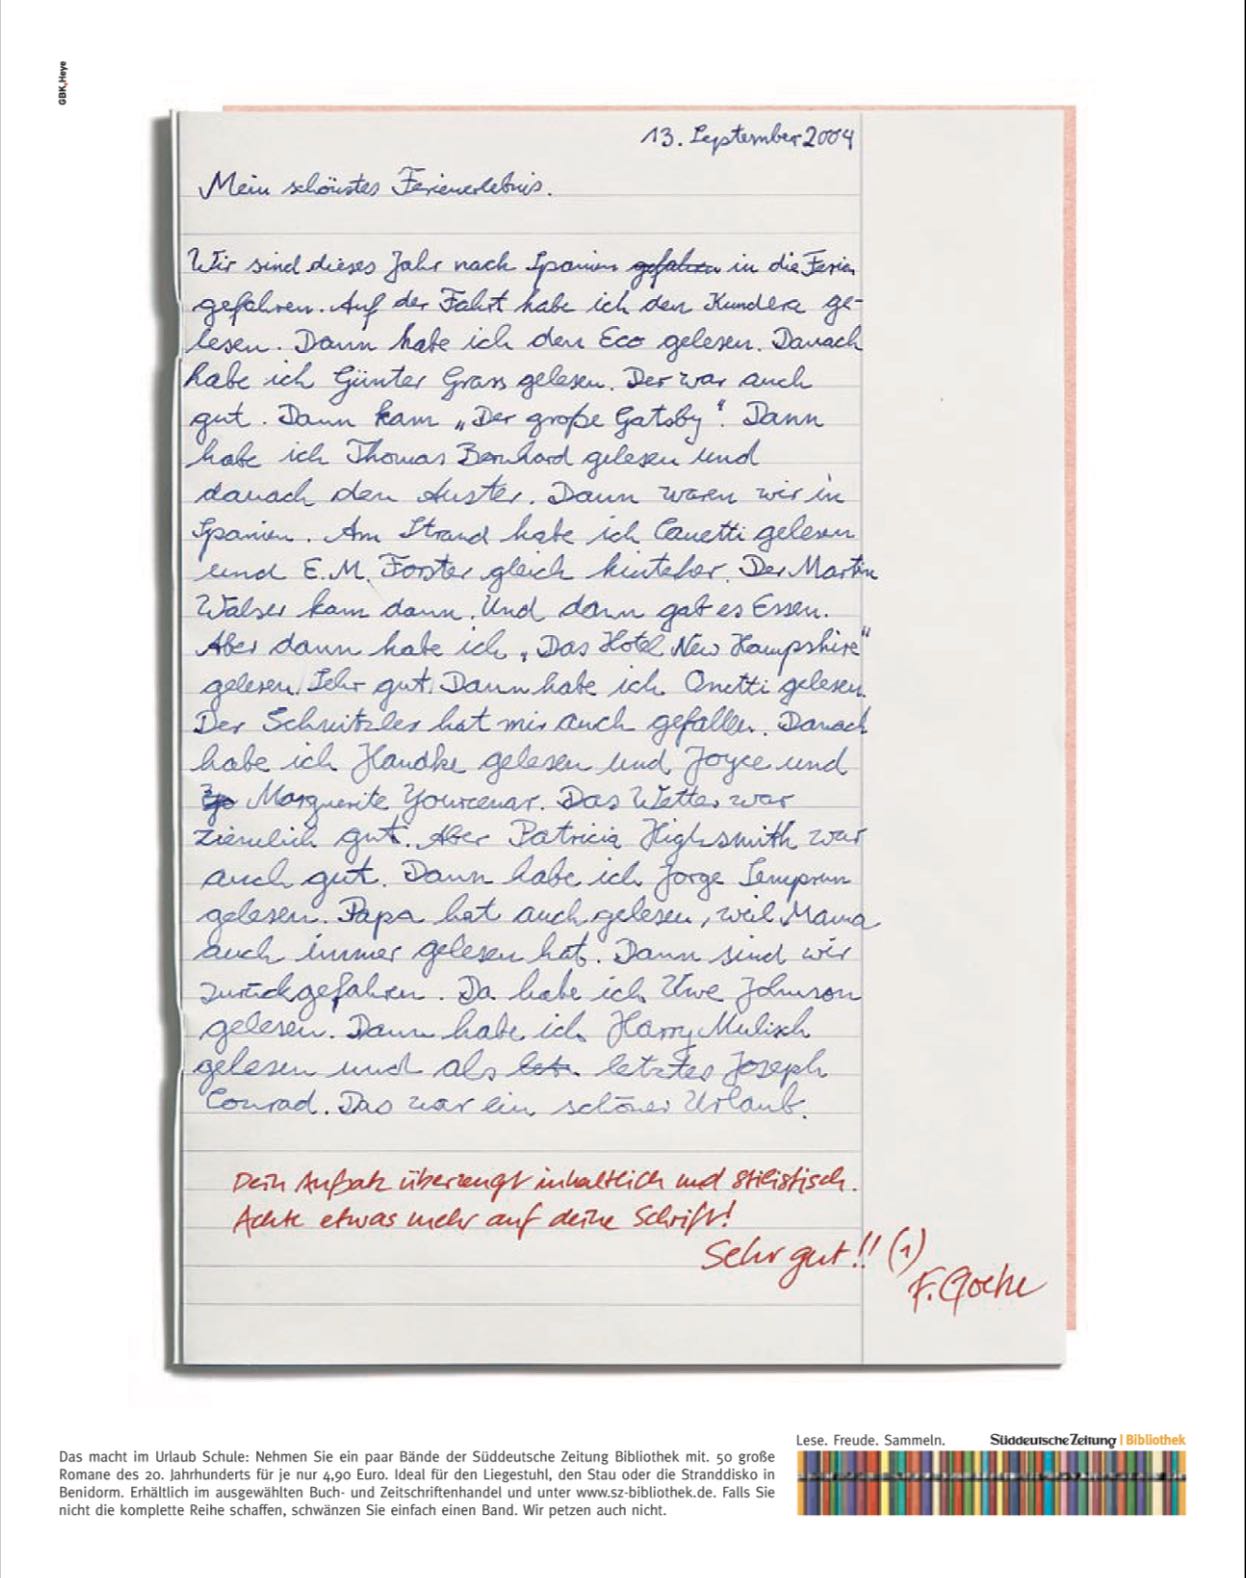 GBK,Heye
13. September 2004
Mein schönstes Ferienerlebnis.
Wir sind dieses Jahr nach Spanien gefahren in die Ferien
gefahren. Auf der Fahrt habe ich den Kundera ge-
lesen. Dann habe ich den Eco gelesen. Danach
habe ich Günter Grass gelesen. Der war auch
gut. Dann kam „Der große Gatsby“. Dann
habe ich Thomas Bernhard gelesen und
danach den Auster. Dann waren wir in
Spanien. Am Strand habe ich Canetti gelesen
und E.M. Forster gleich hinterher. Der Martin
Walser kam dann. Und dann gab es Essen.
Aber dann habe ich „Das Hotel New Hampshire“
gelesen. Sehr gut. Dann habe ich Onetti gelesen.
Der Schnitzler hat mir auch gefallen. Danach
habe ich Handke gelesen und Joyce und
Marguerite Yourcenar. Das Wetter war
ziemlich gut. Aber Patricia Highsmith war
auch gut. Dann habe ich Jorge Semprun
gelesen. Papa hat auch gelesen, weil Mama
auch immer gelesen hat. Dann sind wir
zurückgefahren. Da habe ich Uwe Johnson
gelesen. Dann habe ich Harry Mulisch
gelesen und als letztes Joseph
Conrad. Das war ein schöner Urlaub.
Dein Aufsatz überzeugt inhaltlich und stilistisch.
Achte etwas mehr auf deine Schrift!
Sehr gut!! (1)
Lese. Freude. Sammeln. Süddeutsche Zeitung | Bibliothek
Das macht im Urlaub Schule: Nehmen Sie ein paar Bände der Süddeutsche Zeitung Bibliothek mit. 50 große
Romane des 20. Jahrhunderts für je nur 4,90 Euro. Ideal für den Liegestuhl, den Stau oder die Stranddisko in
Benidorm. Erhältlich im ausgewählten Buch- und Zeitschriftenhandel und unter www.sz-bibliothek.de. Falls Sie
nicht die komplette Reihe schaffen, schwänzen Sie einfach einen Band. Wir petzen auch nicht.